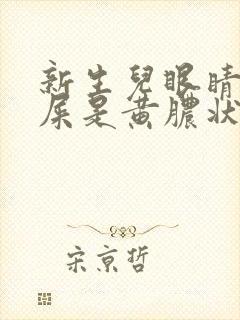 新生兒眼睛
屎是黃膿狀
宋京哲